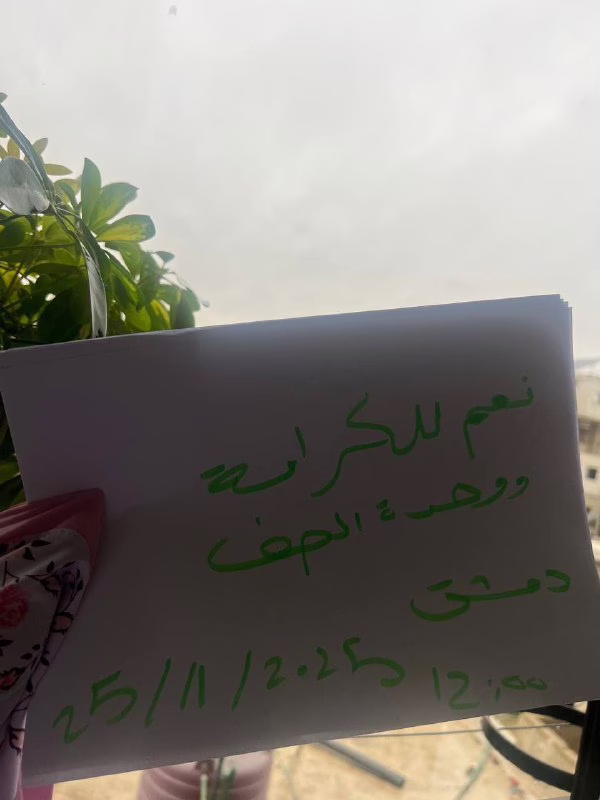 نعم للكرامة
ووحدة الصف
دمشق
25/11/2025 12:00